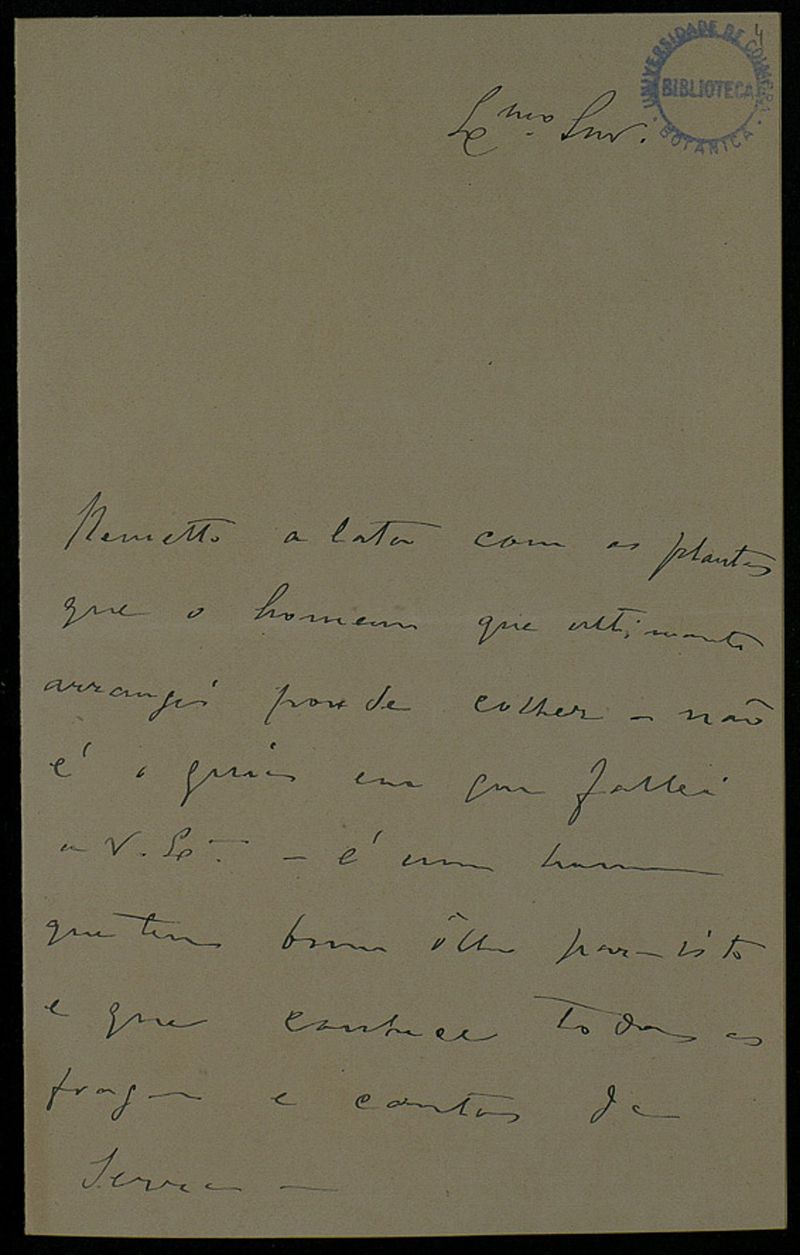 4
UNIVERSIDADE DE COIMBRA
BIBLIOTECA
BOTANICA
Exmo. Snr.
Remetto a lata com as plantas
que o homem que ultimamente
arranjei poude colher — não
é o guia em que fallei
a V. Ex.ª — é um homem
que tem bom ôlho para isto
e que conhece todas as
fragas e cantos da
Serra —